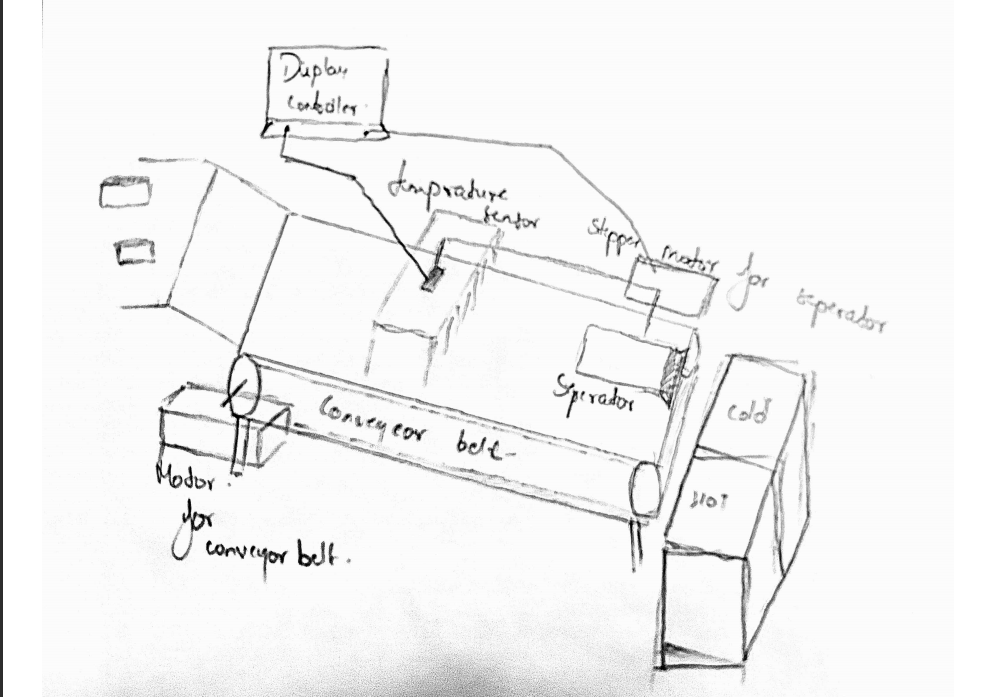 Display
controller.
temprature
sensor
stepper motor for seperator
Seperator
cold
HOT
Conveyeor belt
Motor
for
conveyor belt.